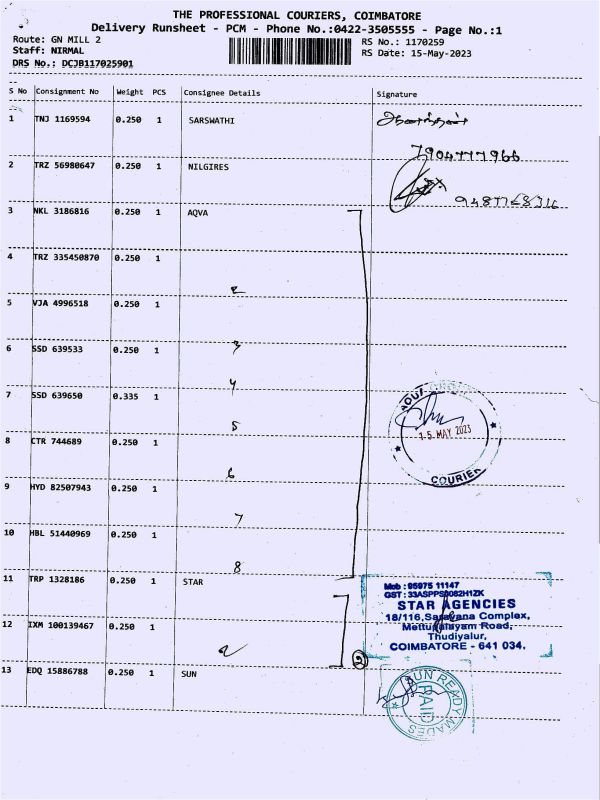 THE PROFESSIONAL COURIERS, COIMBATORE
Delivery Runsheet - PCM - Phone No.:0422-3505555 - Page No.:1
Route: GN MILL 2
RS No.: 1170259
Staff: NIRMAL
RS Date: 15-May-2023
DRS No.: DCJB117025901
S No Consignment No Weight PCS Consignee Details Signature
1 TNJ 1169594 0.250 1 SARSWATHI
7904777966
2 TRZ 56980647 0.250 1 NILGIRES
3 NKL 3186816 0.250 1 AQVA
4 TRZ 335450870 0.250 1
2
5 VJA 4996518 0.250 1
6 SSD 639533 0.250 1 3
4
7 SSD 639650 0.335 1
5
15 MAY 2023
8 CTR 744689 0.250 1
6
COURIER
9 HYD 82507943 0.250 1
7
10 HBL 51440969 0.250 1
8
11 TRP 1328186 0.250 1 STAR
Mob : 95975 11147
GST : 33ASPPS8082H1ZK
STAR AGENCIES
18/116, Saravana Complex,
Mettupalayam Road,
Thudiyalur,
COIMBATORE - 641 034.
12 IXM 100139467 0.250 1
2
2
13 EDQ 15886788 0.250 1 SUN
SUN READY MADES
PAID